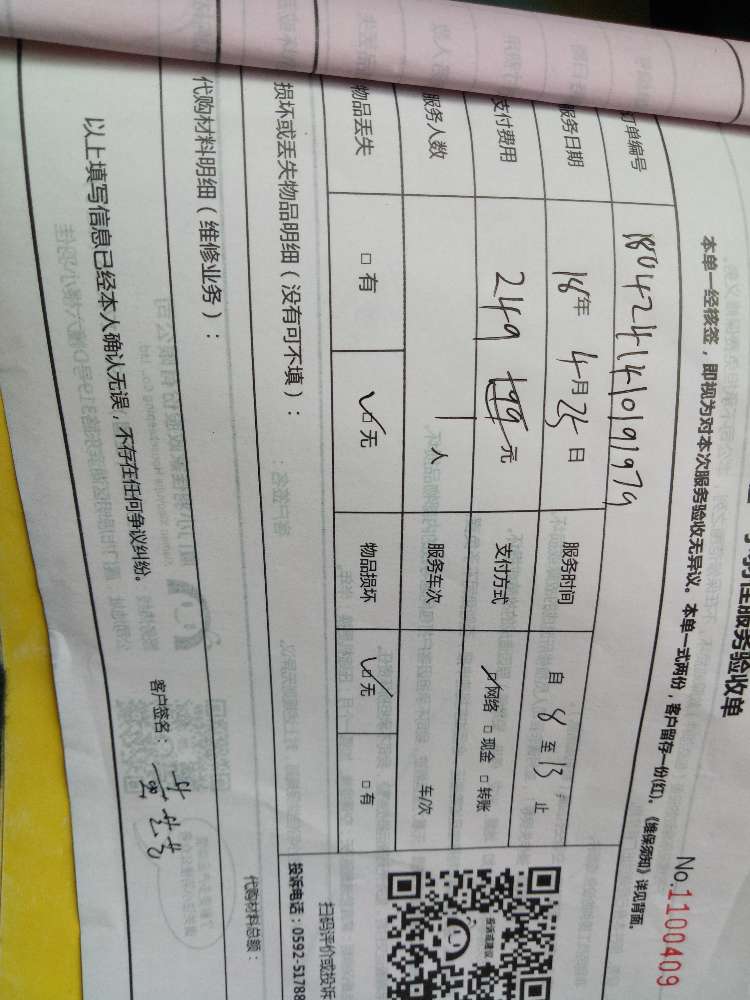 性服务验收单
No.1100409
本单一经核签，即视为对本次服务验收无异议。本单一式两份，客户留存一份(红)。《维保须知》详见背面。
订单编号 180424141091979
服务日期 18年 4月25日 服务时间 自 8 至 13 止
支付费用 249 199 元 支付方式 ☑网络 □现金 □转账
服务人数 1 人 服务车次 车/次
物品丢失 □有 ☑无 物品损坏 ☑无 □有
损坏或丢失物品明细（没有可不填）：
代购材料明细（维修业务）：
代购材料总额：
以上填写信息已经本人确认无误，不存在任何争议纠纷。
客户签名：
投诉或建议
扫码评价或投诉
投诉电话：0592-51788